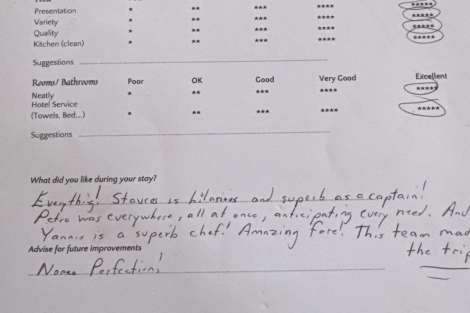 Presentation * ** *** **** *****
Variety * ** *** **** *****
Quality * ** *** **** *****
Kitchen (clean) * ** *** **** *****
Suggestions
Rooms/ Bathrooms Poor OK Good Very Good Excellent
Neatly * ** *** **** *****
Hotel Service
(Towels, Bed...) * ** *** **** *****
Suggestions
What did you like during your stay?
Everything! Stavros is hilarious and superb as a captain!
Petro was everywhere, all at once, anticipating every need. And
Yannis is a superb chef! Amazing fare! This team mad
the trip
Advise for future improvements
None Perfection!